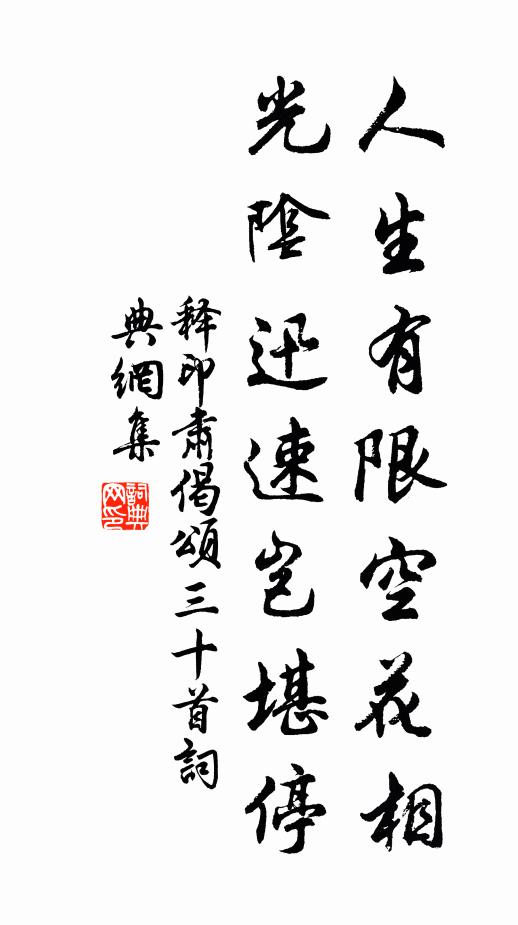 人生有限空花相
光陰迅速豈堪停
释印肅偈頌三十首詞
典網集
詞典網印